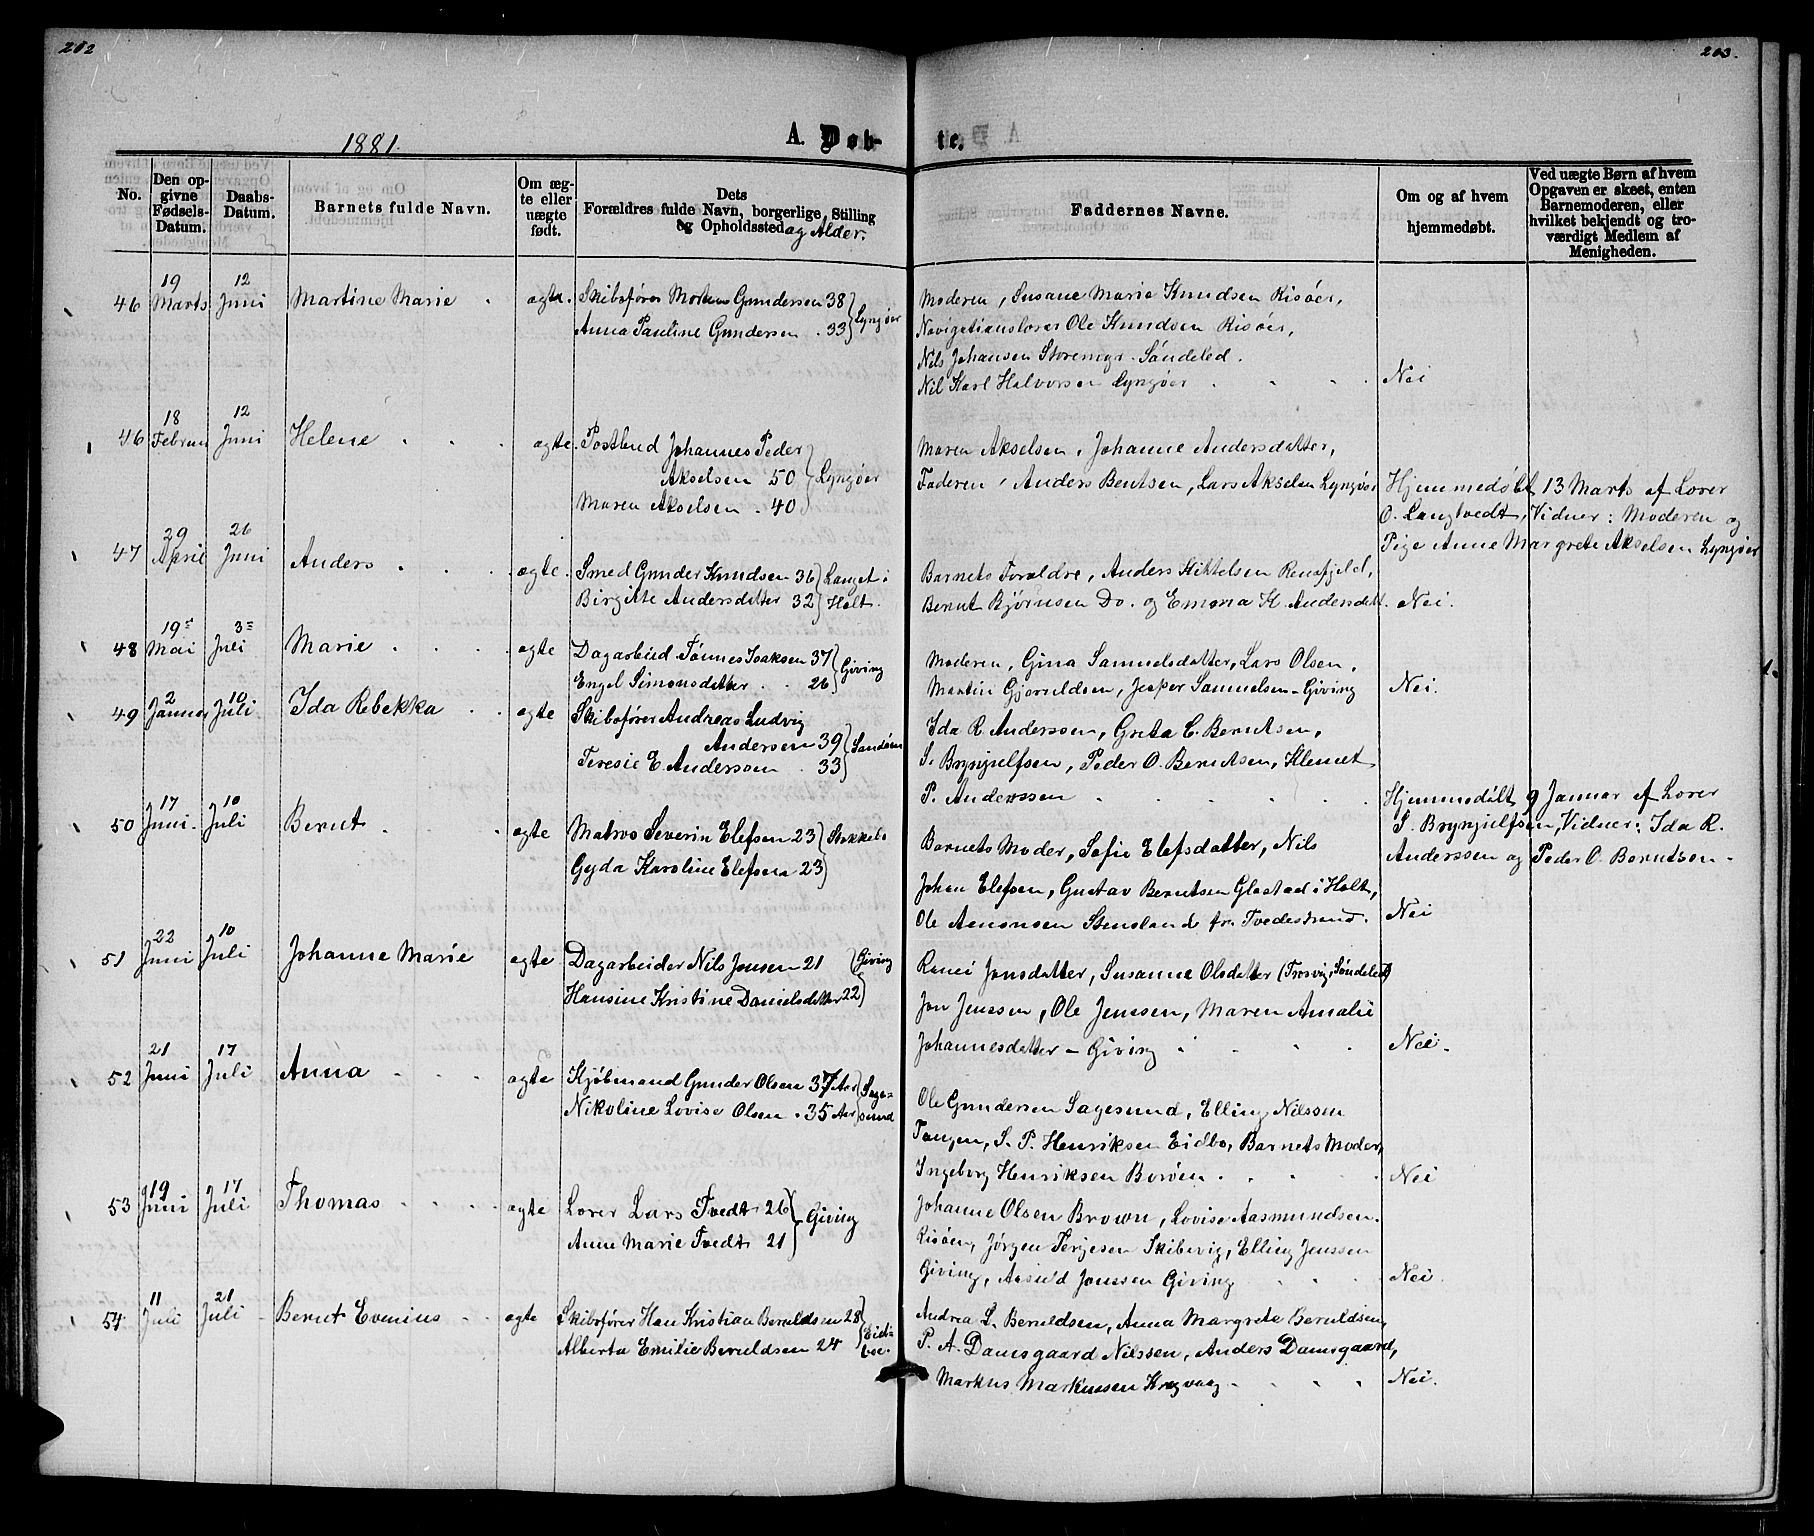 202
203.
1881.
A. Døb-
te.
No.
Den op-
givne
Fødsels-
Datum.
Daabs-
Datum.
Barnets fulde Navn.
Om æg-
te eller
uægte
født.
Dets
Forældres fulde Navn, borgerlige Stilling
og Opholdssted og Alder.
Faddernes Navne.
Om og af hvem
hjemmedøbt.
Ved uægte Børn af hvem
Opgaven er skeet, enten
Barnemoderen, eller
hvilket bekjendt og tro-
værdigt Medlem af
Menigheden.
46 19 Marts 12 Juni Martine Marie ægte. Skibsfører Morten Gundersen 38
Anna Pauline Gundersen 33 Lyngøer
Moderen, Susane Marie Knudsen Risøer,
Navigationslærer Ole Knudsen Risøer,
Nils Johansen Storemyr Söndeled.
Nil Karl Halvorsen Lyngøer Nei
46 18 Februar 12 Juni Helene ægte. Postbud Johannes Peder
Akselsen 50 Lyngøer
Maren Akselsen 40
Maren Akselsen, Johanne Andersdatter,
Faderen, Anders Bentsen, Lars Akselsen Lyngøer
Hjemmedøbt 13 Marts af Lærer
O. Langtvedt, Vidner: Moderen og
Pige Anne Margrete Akselsen Lyngøer
47 29 April 26 Juni Anders ægte. Smed Gunder Knudsen 36 Langet i
Birgitte Andersdatter 32 Holt.
Barnets Forældre, Anders Kittelsen Rensfjeld,
Bernt Bjørnsen Do. og Emma K. Andersdatt. Nei.
48 19 Mai 3 Juli Marie ægte Dagarbeid Tønnes Isaksen 37
Engel Simonsdatter 26 Giving
Moderen, Gina Samuelsdatter, Lars Olsen,
Martin Gjeruldsen, Jesper Samuelsen - Giving Nei.
49 2 Januar 10 Juli Ida Rebekka ægte Skibsfører Andreas Ludvig
Andersen 39 Sandøen
Teresie E. Anderssen 33
Ida R. Anderssen, Greta C. Berntsen,
S. Brynjulfsen, Peder O. Berntsen, Klemet
P. Anderssen
Hjemmedøbt 9 Januar af Lærer
S. Brynjulfsen, Vidner: Ida R.
Anderssen og Peder O. Berntsen
50 17 Juni 10 Juli Bernt ægte Matros Severin Elefsen 23
Gyda Karoline Elefsen 23
Barnets Moder, Sofie Elefsdatter, Nils
Johan Elefsen, Gustav Berntsen Glastad i Holt,
Ole Amonsen Stensland fr. Tvedestrand. Nei
51 22 Juni 10 Juli Johanne Marie ægte Dagarbeider Nils Jensen 21 Giving
Hansine Kristine Danielsdatter 22
Jonsdatter, Susanne Olsdatter (Trosvig, Söndeled)
Jon Jenssen, Ole Jenssen, Maren Amalie
Johannesdatter - Giving Nei.
52 21 Juni 17 Juli Anna ægte Kjøbmand Gunder Olsen 37 Aar Sage-
Nikoline Lovise Olsen 35 Aar sund
Ole Gundersen Sagesund, Elling Nilssen
Tangen, S. P. Henriksen Eidbo, Barnets Moder,
Ingeborg Henriksen Borøen Nei
53 19 Juni 17 Juli Thomas ægte Lærer Lars Tvedt 26
Anne Marie Tvedt 21 Giving
Johanne Olsen Brown, Lovise Aasmundsen
Risøen, Jørgen Terjesen Skibevig, Elling Jenssen
Giving, Jonssen Giving Nei.
54 11 Juli 21 Juli Bernt Evenius ægte Skibsfører Han Kristian Beruldsen 28 Eid-
Alberta Emilie Beruldsen 24 boe.
Andrea L. Beruldsen, Anna Margrete Beruldsen,
P. A. Damsgaard Nilssen, Anders Damsgaard,
Markus Markussen Krogvaag Nei.